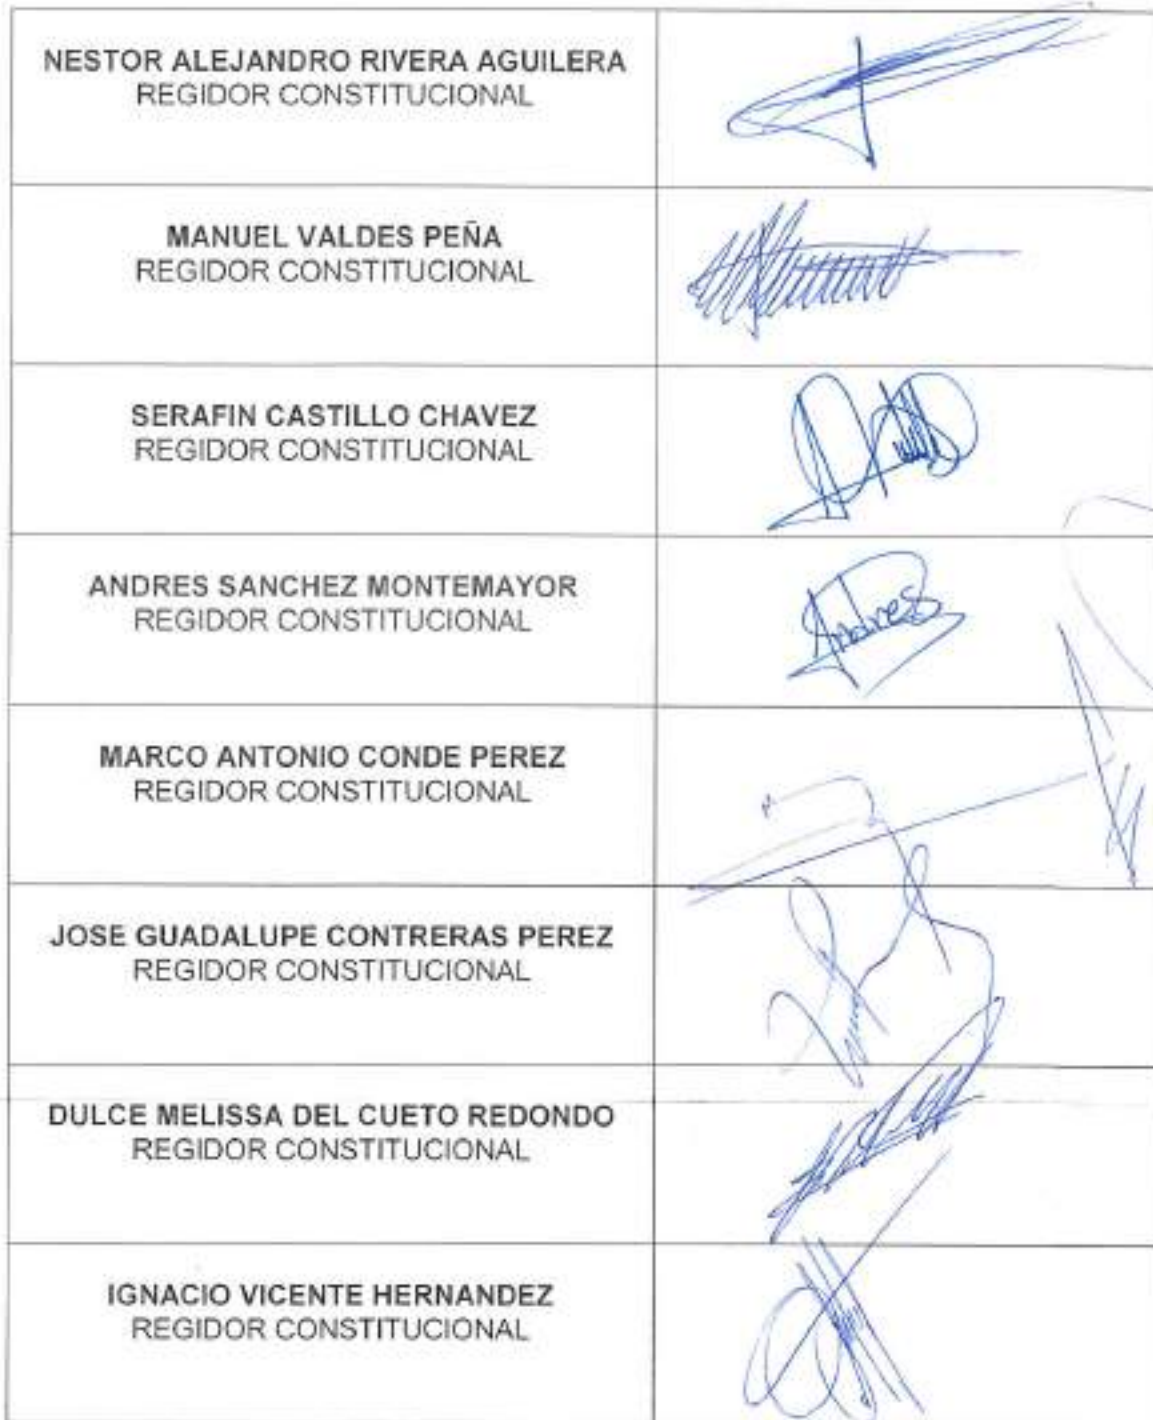 NESTOR ALEJANDRO RIVERA AGUILERA
REGIDOR CONSTITUCIONAL
MANUEL VALDES PEÑA
REGIDOR CONSTITUCIONAL
SERAFIN CASTILLO CHAVEZ
REGIDOR CONSTITUCIONAL
ANDRES SANCHEZ MONTEMAYOR
REGIDOR CONSTITUCIONAL
Andres
MARCO ANTONIO CONDE PEREZ
REGIDOR CONSTITUCIONAL
JOSE GUADALUPE CONTRERAS PEREZ
REGIDOR CONSTITUCIONAL
DULCE MELISSA DEL CUETO REDONDO
REGIDOR CONSTITUCIONAL
IGNACIO VICENTE HERNANDEZ
REGIDOR CONSTITUCIONAL